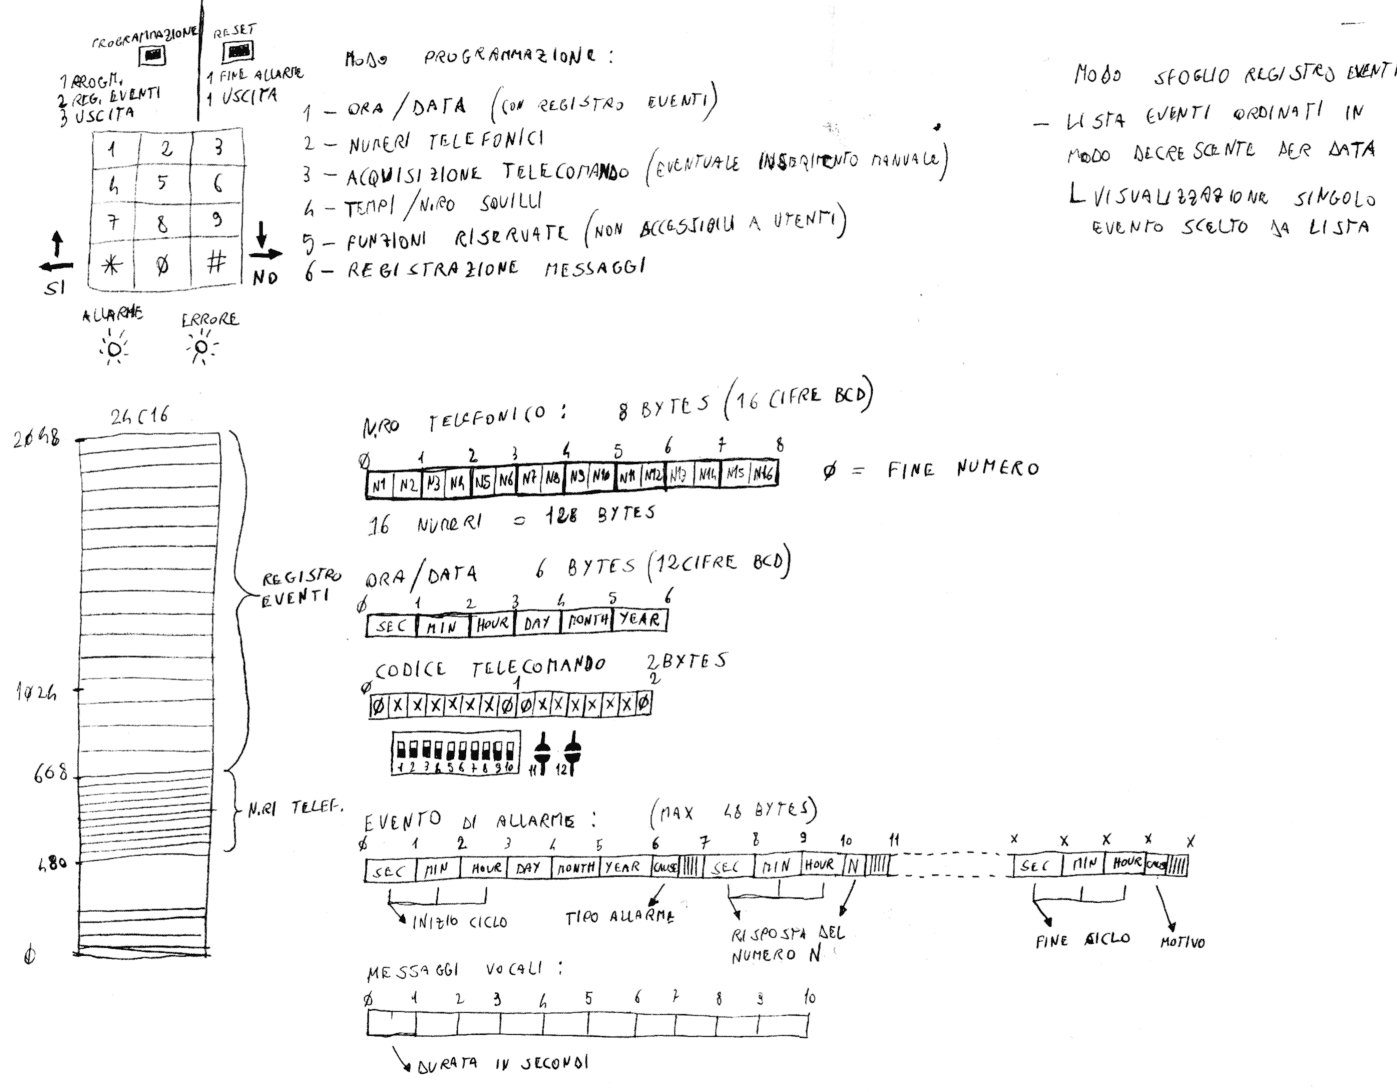 PROGRAMMAZIONE
RESET
1 PROGM.
2 REG. EVENTI
3 USCITA
1 FINE ALLARME
1 USCITA
1 2 3
4 5 6
7 8 9
* Ø #
SI
NO
ALLARME
ERRORE
MODO PROGRAMMAZIONE :
1 - ORA/DATA (CON REGISTRO EVENTI)
2 - NUMERI TELEFONICI
3 - ACQUISIZIONE TELECOMANDO (EVENTUALE INSERIMENTO MANUALE)
4 - TEMPI/N.RO SQUILLI
5 - FUNZIONI RISERVATE (NON ACCESSIBILI A UTENTI)
6 - REGISTRAZIONE MESSAGGI
MODO SFOGLIO REGISTRO EVENTI
- LISTA EVENTI ORDINATI IN
MODO DECRESCENTE PER DATA
L VISUALIZZAZIONE SINGOLO
EVENTO SCELTO DA LISTA
24C16
2Ø48
1Ø24
608
480
Ø
REGISTRO
EVENTI
N.RI TELEF.
N.RO TELEFONICO : 8 BYTES (16 CIFRE BCD)
Ø 1 2 3 4 5 6 7 8
N1 N2 N3 N4 N5 N6 N7 N8 N9 N10 N11 N12 N13 N14 N15 N16
Ø = FINE NUMERO
16 NUMERI = 128 BYTES
ORA/DATA 6 BYTES (12 CIFRE BCD)
Ø 1 2 3 4 5 6
SEC MIN HOUR DAY MONTH YEAR
CODICE TELECOMANDO 2 BYTES
Ø 1 2
Ø X X X X X X Ø Ø X X X X X X Ø
1 2 3 4 5 6 7 8 9 10 11 12
EVENTO DI ALLARME : (MAX 48 BYTES)
Ø 1 2 3 4 5 6 7 8 9 10 11 X X X X X
SEC MIN HOUR DAY MONTH YEAR CAUSE SEC MIN HOUR N SEC MIN HOUR CAUSE
INIZIO CICLO
TIPO ALLARME
RISPOSTA DEL
NUMERO N
FINE CICLO
MOTIVO
MESSAGGI VOCALI :
Ø 1 2 3 4 5 6 7 8 9 10
DURATA IN SECONDI